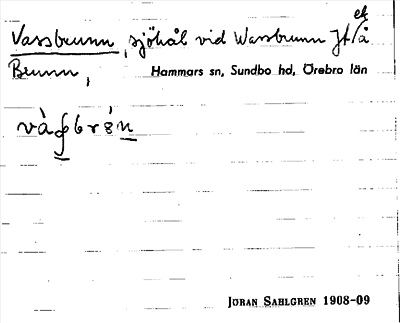 Vassbrunn, sjöhål vid Wassbrunn Jt/å ek
Brunn,
Hammars sn, Sundbo hd, Örebro län
JÖRAN SAHLGREN 1908-09